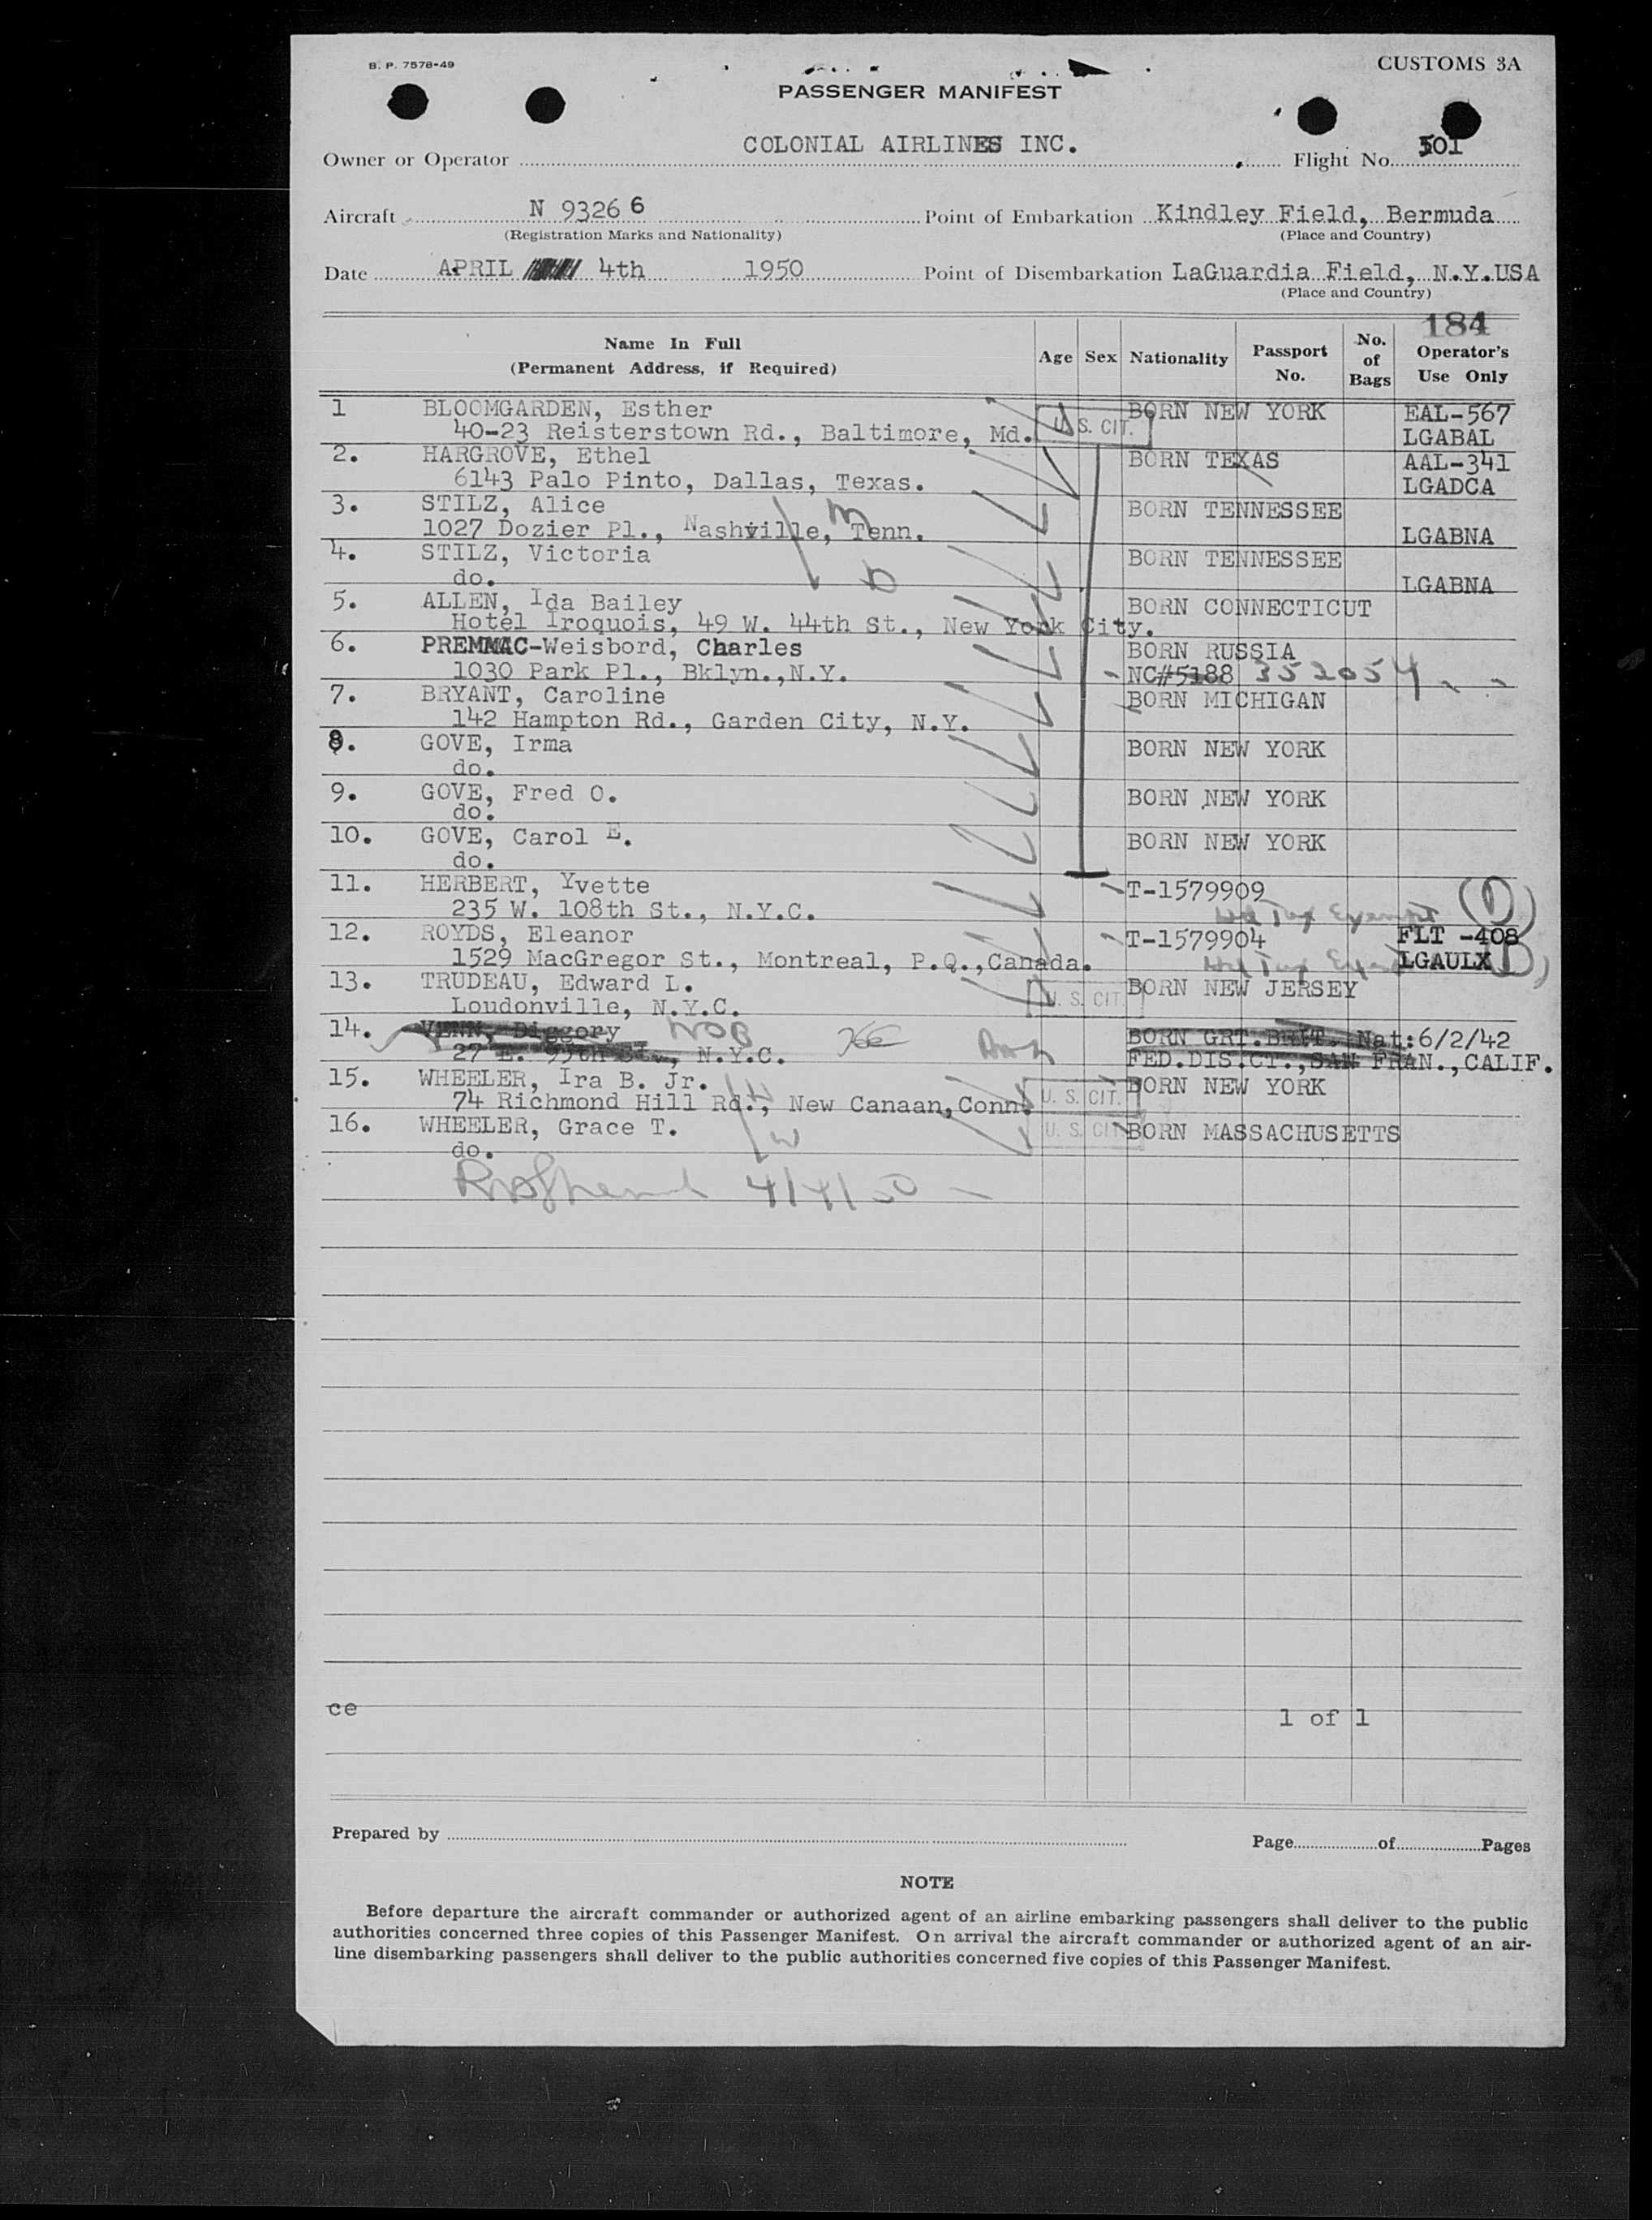 B. P. 7578-49
CUSTOMS 3A
PASSENGER MANIFEST
Owner or Operator COLONIAL AIRLINES INC. Flight No. 501
Aircraft N 93266 Point of Embarkation Kindley Field, Bermuda
(Registration Marks and Nationality) (Place and Country)
Date APRIL 4th 1950 Point of Disembarkation LaGuardia Field, N.Y.USA
(Place and Country)
184
Name In Full (Permanent Address, if Required) Age Sex Nationality Passport No. No. of Bags Operator's Use Only
1 BLOOMGARDEN, Esther BORN NEW YORK EAL-567
40-23 Reisterstown Rd., Baltimore, Md. U. S. CIT. LGABAL
2. HARGROVE, Ethel BORN TEXAS AAL-341
6143 Palo Pinto, Dallas, Texas. LGADCA
3. STILZ, Alice BORN TENNESSEE
1027 Dozier Pl., Nashville, Tenn. LGABNA
4. STILZ, Victoria BORN TENNESSEE
do. LGABNA
5. ALLEN, Ida Bailey BORN CONNECTICUT
Hotel Iroquois, 49 W. 44th St., New York City.
6. PREMMAC-Weisbord, Charles BORN RUSSIA
1030 Park Pl., Bklyn.,N.Y. NC#5188 352054
7. BRYANT, Caroline BORN MICHIGAN
142 Hampton Rd., Garden City, N.Y.
8. GOVE, Irma BORN NEW YORK
do.
9. GOVE, Fred O. BORN NEW YORK
do.
10. GOVE, Carol E. BORN NEW YORK
do.
11. HERBERT, Yvette T-1579909
235 W. 108th St., N.Y.C. Hd Tax Exempt
12. ROYDS, Eleanor T-1579904 FLT -408
1529 MacGregor St., Montreal, P.Q.,Canada. Hd Tax LGAULX
13. TRUDEAU, Edward L. BORN NEW JERSEY
Loudonville, N.Y.C. U. S. CIT.
14. VENN, Diggory NOB BORN GRT.BRIT. Nat:6/2/42
27 E. 95th St., N.Y.C. FED.DIS.CT.,SAN FRAN.,CALIF.
15. WHEELER, Ira B. Jr. BORN NEW YORK
74 Richmond Hill Rd., New Canaan,Conn. U. S. CIT.
16. WHEELER, Grace T. U. S. CIT. BORN MASSACHUSETTS
do.
4/4/50
ce 1 of 1
Prepared by Page of Pages
NOTE
Before departure the aircraft commander or authorized agent of an airline embarking passengers shall deliver to the public
authorities concerned three copies of this Passenger Manifest. On arrival the aircraft commander or authorized agent of an air-
line disembarking passengers shall deliver to the public authorities concerned five copies of this Passenger Manifest.